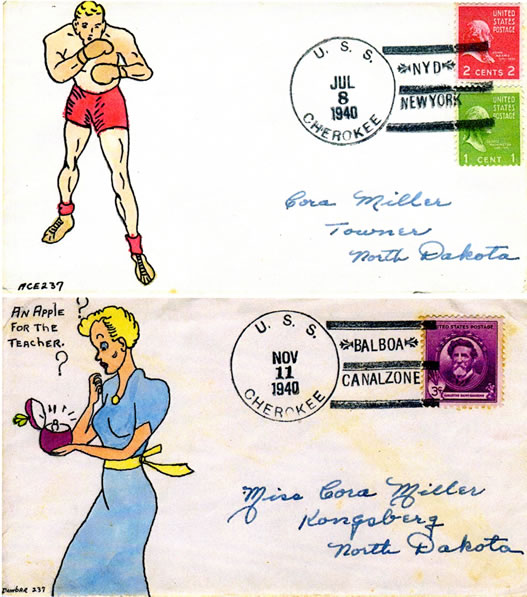 UNITED STATES POSTAGE
2 CENTS 2
UNITED STATES POSTAGE
1 CENT 1
U. S. S.
CHEROKEE
JUL
8
1940
NYD
NEWYORK
Cora Miller
Towner
North Dakota
ACE237
AN APPLE
FOR THE
TEACHER.
?
?
U. S. S.
CHEROKEE
NOV
11
1940
BALBOA
CANALZONE
UNITED STATES POSTAGE
3¢
Miss Cora Miller
Kongsberg
North Dakota
DUNBAR 237